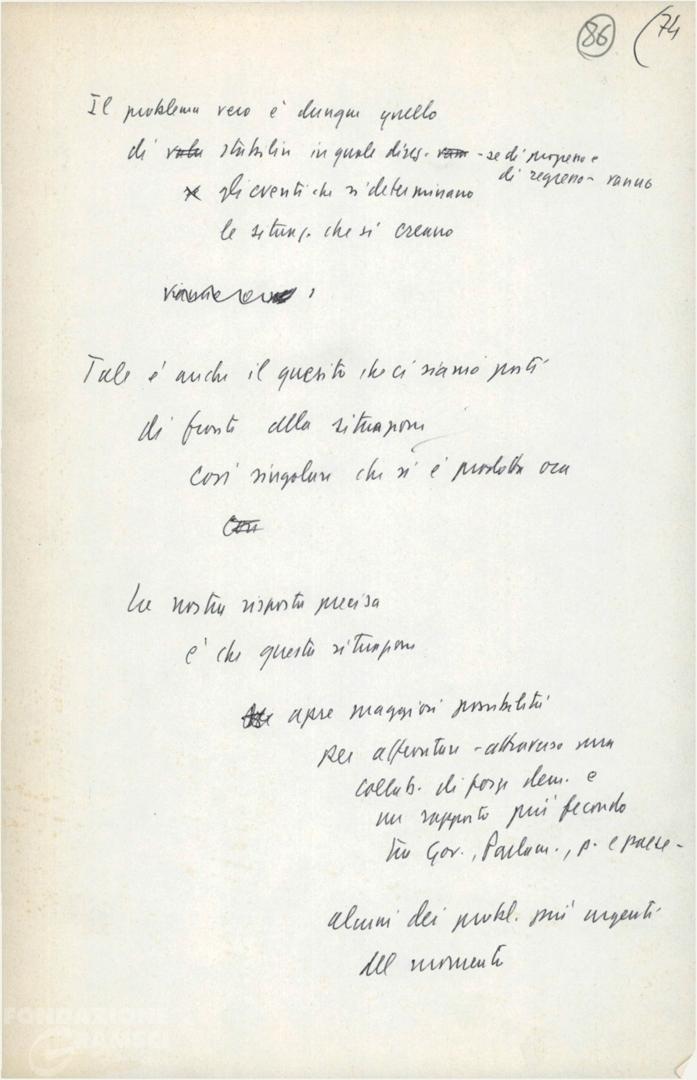 86 (74
Il problema vero è dunque quello
di stabilire in quale direz. - se di progresso e
di regresso - vanno
gli eventi che si determinano
le situaz. che si creano
Tale è anche il quesito che ci siamo posti
di fronte alla situazione
così singolare che si è prodotta ora
Così
La nostra risposta precisa
è che questa situazione
apre maggiori possibilità
per affrontare - attraverso una
collab. di forze dem. e
un rapporto più fecondo
tra Gov., Parlam., p. e paese -
alcuni dei probl. più urgenti
del momento
FONDAZIONE
GRAMSCI